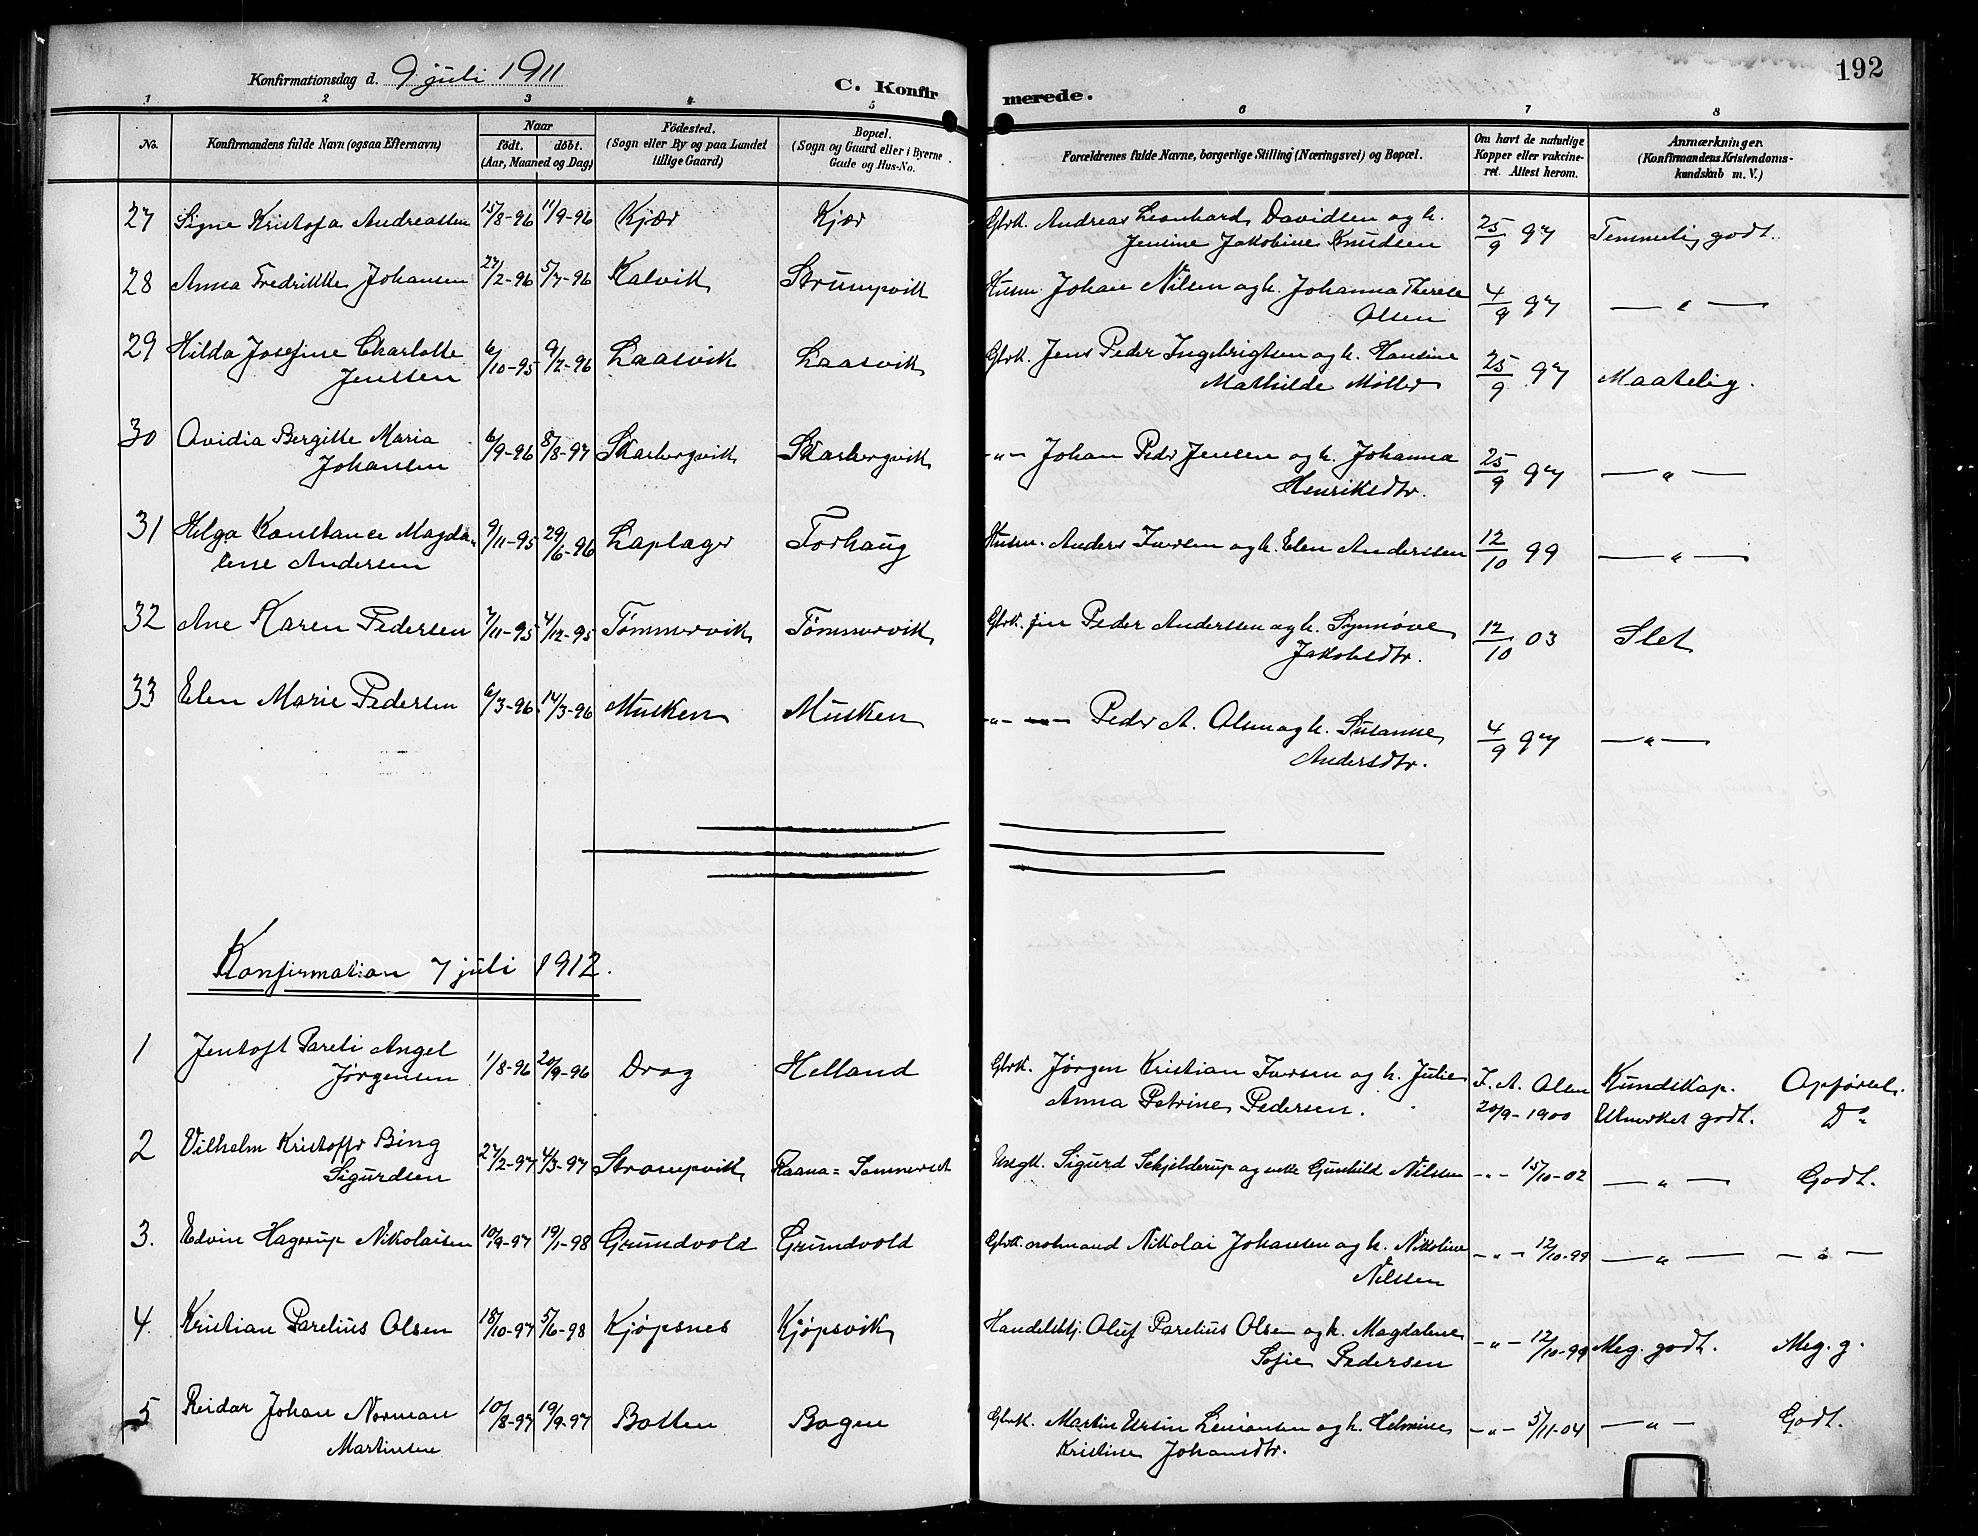 192
Konfirmationsdag d. 9 juli 1911
C. Konfirmerede.
1 2 3 4 5 6 7 8
No. Konfirmandens fulde Navn (ogsaa Efternavn) Naar født. døbt. (Aar, Maaned og Dag) Födested. (Sogn eller By og paa Landet tillige Gaard) Bopæl. (Sogn og Gaard eller i Byerne Gade og Hus-No. Forældrenes fulde Navne, borgerlige Stilling (Næringsvei) og Bopæl. Om havt de naturlige Kopper eller vakcineret. Attest herom. Anmærkninger. (Konfirmandens Kristendomskundskab m. V.)
27 Signe Kristofa Andreassen 15/8-96 11/9-96 Kjær Kjær Gbrk. Andreas Leonhard Davidsen og h. 25/9 97 Temmelig godt.
Jensine Jakobine Knudsen
28 Anna Fredrikke Johansen 27/2-96 5/7-96 Kalvik Strumpvik Husm. Johan Nilsen og h. Johanna Therese 4/9 97 — " —
Olsen
29 Hilda Josefine Charlotte 6/10-95 9/2-96 Laasvik Laasvik Gbrk. Jens Peder Ingebrigtsen og h. Hansine 25/9 97 Maatelig.
Jenssen Mathilde Møller
30 Ovidia Bergitte Maria 6/9-96 8/8-97 Skarbergvik Skarbergvik -"- Johan Peder Jensen og h. Johanna 25/9 97 — " —
Johansen Henriksdtr.
31 Helga Konstance Magda- 9/11-95 29/6-96 Laplager Forhaug Husm. Anders Iversen og h. Elen Anderssen 12/10 99 — " —
lene Andersen
32 Ane Karen Pedersen 7/11-95 4/12-95 Tømmervik Tømmervik Gbrk. fin Peder Anderssen og h. Synnøve 12/10 03 Slet
Jakobsdtr.
33 Elen Marie Pedersen 6/3-96 14/3-96 Musken Musken -"- — Peder A. Olsen og h. Susanne 4/9 97 — " —
Andersdtr.
Konfirmation 7 juli 1912.
1 Jentoft Pareli Angel 1/8-96 20/9-96 Drag Helland Gbrk. Jørgen Kristian Iversen og h. Julie J. A. Olsen Kundskap. Opførsel.
Jørgensen Anna Petrine Pedersen. 20/9-1900 Utmerket godt. Do
2 Vilhelm Kristoffer Bing 27/2-97 4/3-97 Strompvik Raana = Sommerset Ungk. Sigurd Schjelderup og enke Gunhild Nilssen -"- 15/10-02 — " — Godt.
Sigurdsen
3. Edvin Hagerup Nikolaisen 10/9-97 19/1-98 Grundvold Grundvold Gbrk. nordmand Nikolai Johansen og h. Nikoline -"- 12/10-99 — " — — " —
Nilssen
4. Kristian Parelius Olsen 18/10-97 5/6-98 Kjøpsnes Kjøpsvik Handelsbtj. Oluf Parelius Olsen og h. Magdalene -"- 12/10-99 Meg. godt. Meg. g.
Sofie Pedersen
5 Reidar Johan Norman 10/8-97 19/9-97 Botten Bogen Gbrk. Martin Ursin Leviansen og h. Helmine -"- 5/11-04 — " — Godt.
Martinsen Kristine Johansdtr.